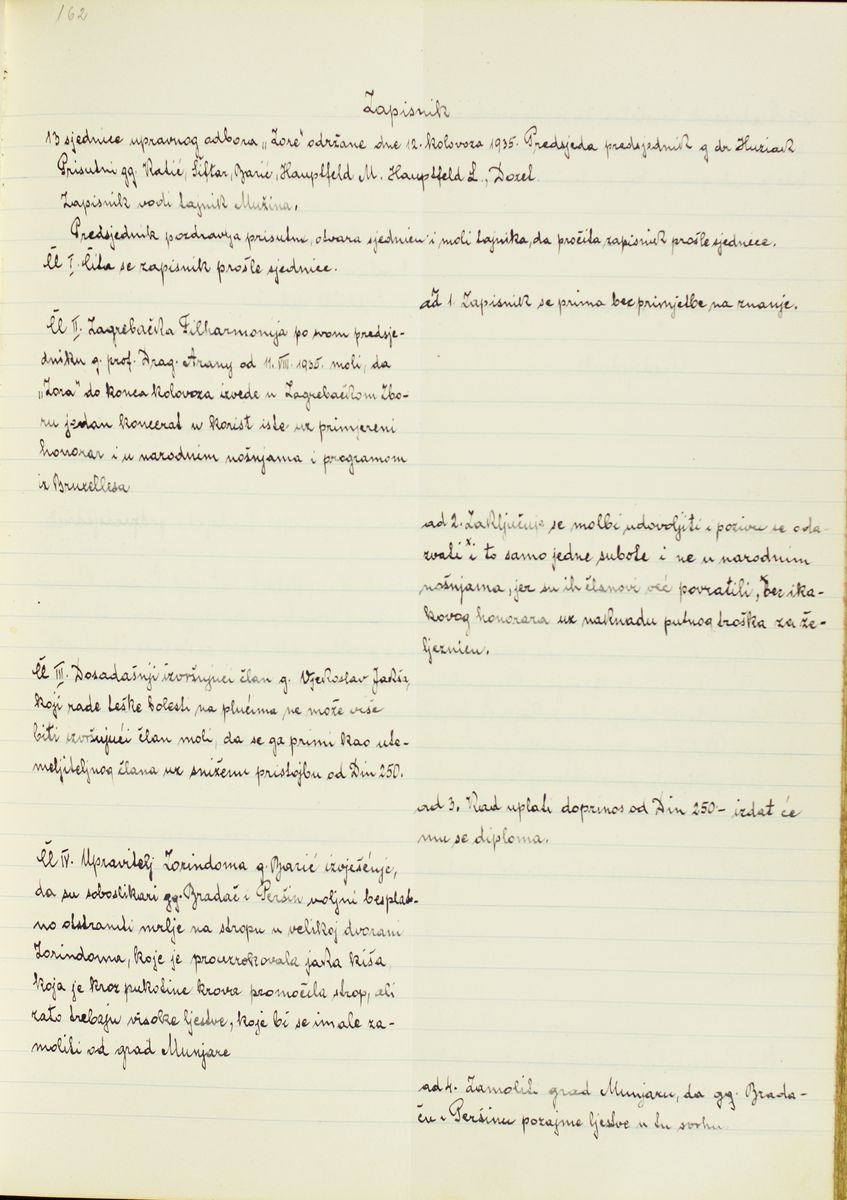 162
Zapisnik
13 sjednice upravnog odbora „Zore" održane dne 12. kolovoza 1935. Predsjeda predsjednik g dr Huzjak
Prisutni gg. Katić, Šiftar, Barić, Hauptfeld M. Hauptfeld L., Dozet
Zapisnik vodi tajnik Mužina.
Predsjednik pozdravlja prisutne, otvara sjednicu i moli tajnika, da pročita zapisnik prošle sjednice.
Čl I. Čita se zapisnik prošle sjednice.
ad 1. Zapisnik se prima bez primjetbe na znanje.
Čl II. Zagrebačka Filharmonija po svom predsje-
dniku g. prof. Drag. Arany od 11. VIII. 1935. moli, da
„Zora" do konca kolovoza izvede u Zagrebačkom Zbo-
ru jedan koncerat u korist iste uz primjereni
honorar i u narodnim nošnjama i programom
iz Bruxellesa
ad 2. Zaključuje se molbi udovoljiti i pozivu se oda-
zvati x i to samo jedne subote i ne u narodnim
nošnjama, jer su ih članovi već povratili, x bez ika-
kovog honorara uz naknadu putnog troška za že-
ljeznicu.
Čl III. Dosadašnji izvršujući član g. Vjekoslav Jakša,
koji rade teške bolesti na plućima, ne može više
biti izvršujući član moli, da se ga primi kao ute-
meljiteljnog člana uz sniženu pristojbu od Din 250.
ad 3. Kad uplati doprinos od Din 250- izdat će
mu se diploma.
Čl IV. Upravitelj Zorindoma g. Barić izvješćuje,
da su soboslikari gg. Bradač i Peršin voljni besplat-
no otstraniti mrlje na stropu u velikoj dvorani
Zorindoma, koje je prouzrokovala jaka kiša,
koja je kroz pukotine krova promočila strop, ali
zato trebaju visoke ljestve, koje bi se imale za-
moliti od grad Munjare
ad 4. Zamoliti grad Munjaru, da gg. Brada-
ču i Peršinu pozajme ljestve u tu svrhu.